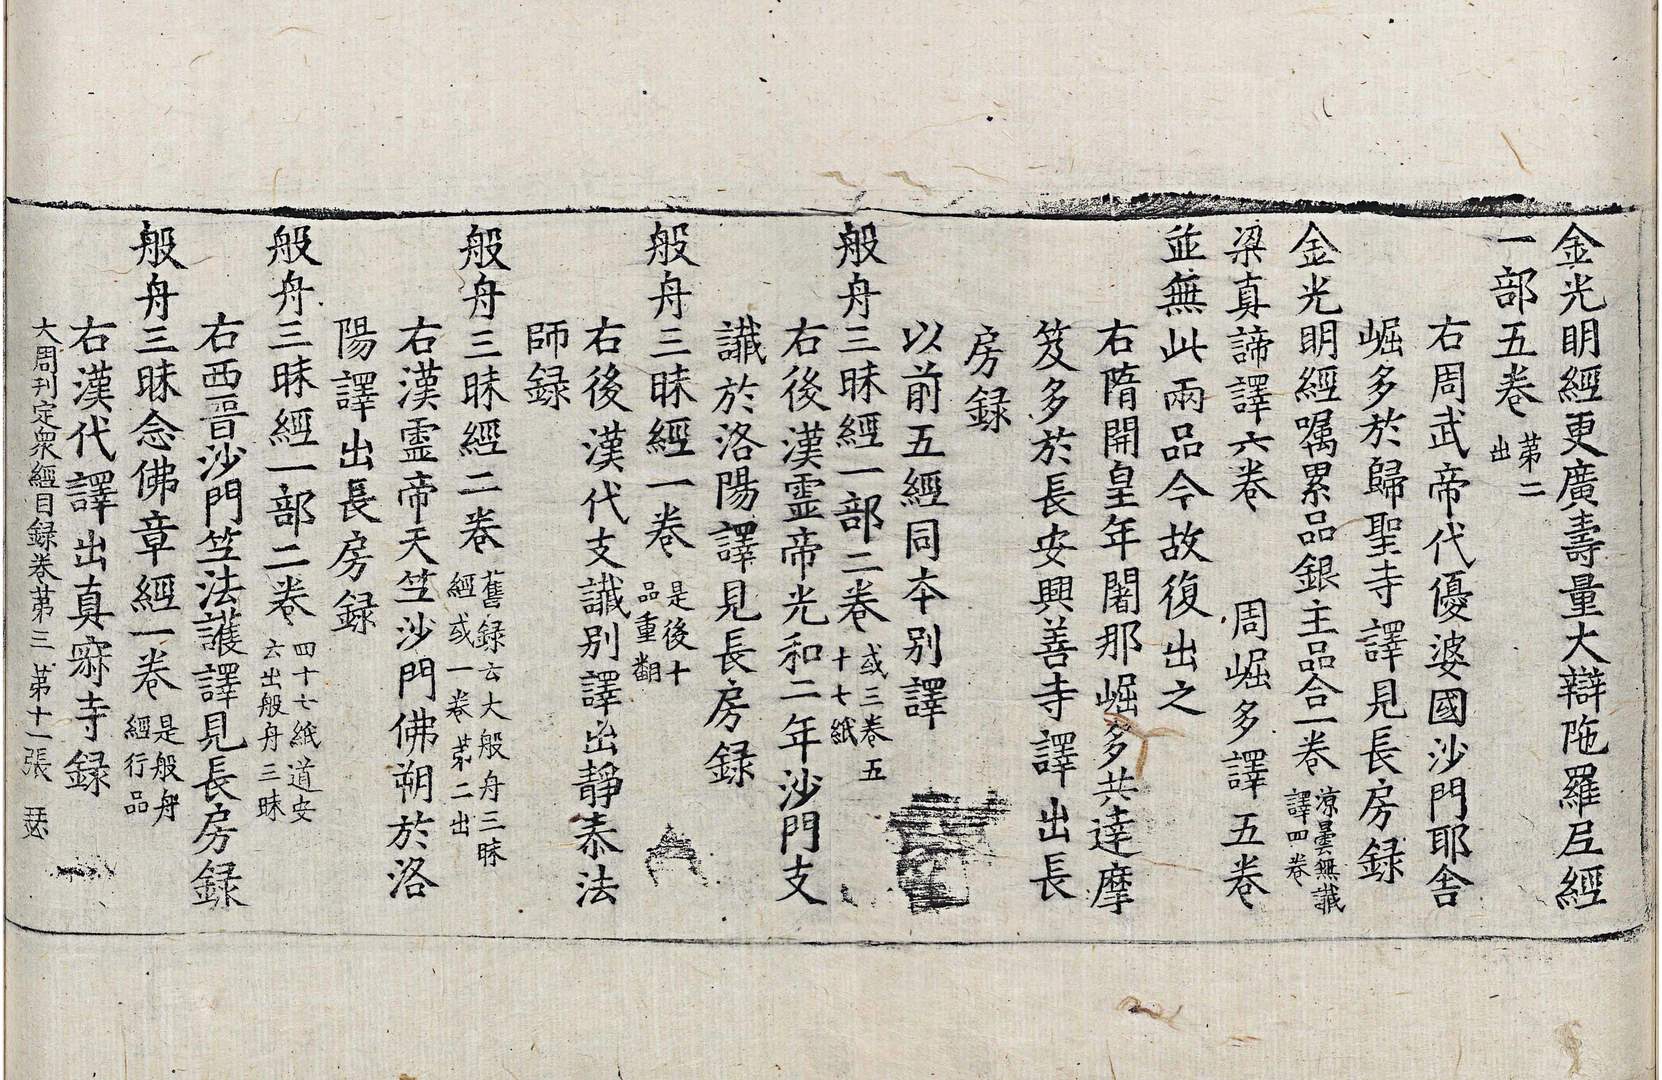 金光明經更廣壽量大辯陁羅尼經
一部五卷 苐二出
右周武帝代優婆國沙門耶舍
崛多於歸聖寺譯見長房録
金光明經嘱累品銀主品合一卷 涼曇無讖譯四卷
梁真諦譯六卷 周崛多譯五卷
並無此兩品今故復出之
右隋開皇年闍那崛多共達摩
笈多於長安興善寺譯出長
房録
以前五經同本別譯
般舟三昧經一部二卷 或三卷五十七紙
右後漢霊帝光和二年沙門支
讖於洛陽譯見長房録
般舟三昧經一卷 是後十品重翻
右後漢代支讖別譯出靜泰法
師録
般舟三昧經二卷 舊録云大般舟三昧經或一卷苐二出
右漢霊帝天竺沙門佛朔於洛
陽譯出長房録
般舟三昧經一部二卷 四十七紙道安云出般舟三昧
右西晋沙門竺法護譯見長房録
般舟三昧念佛章經一卷 是般舟經行品
右漢代譯出真寂寺録
大周刊定衆經目録卷苐三 苐十一張 瑟